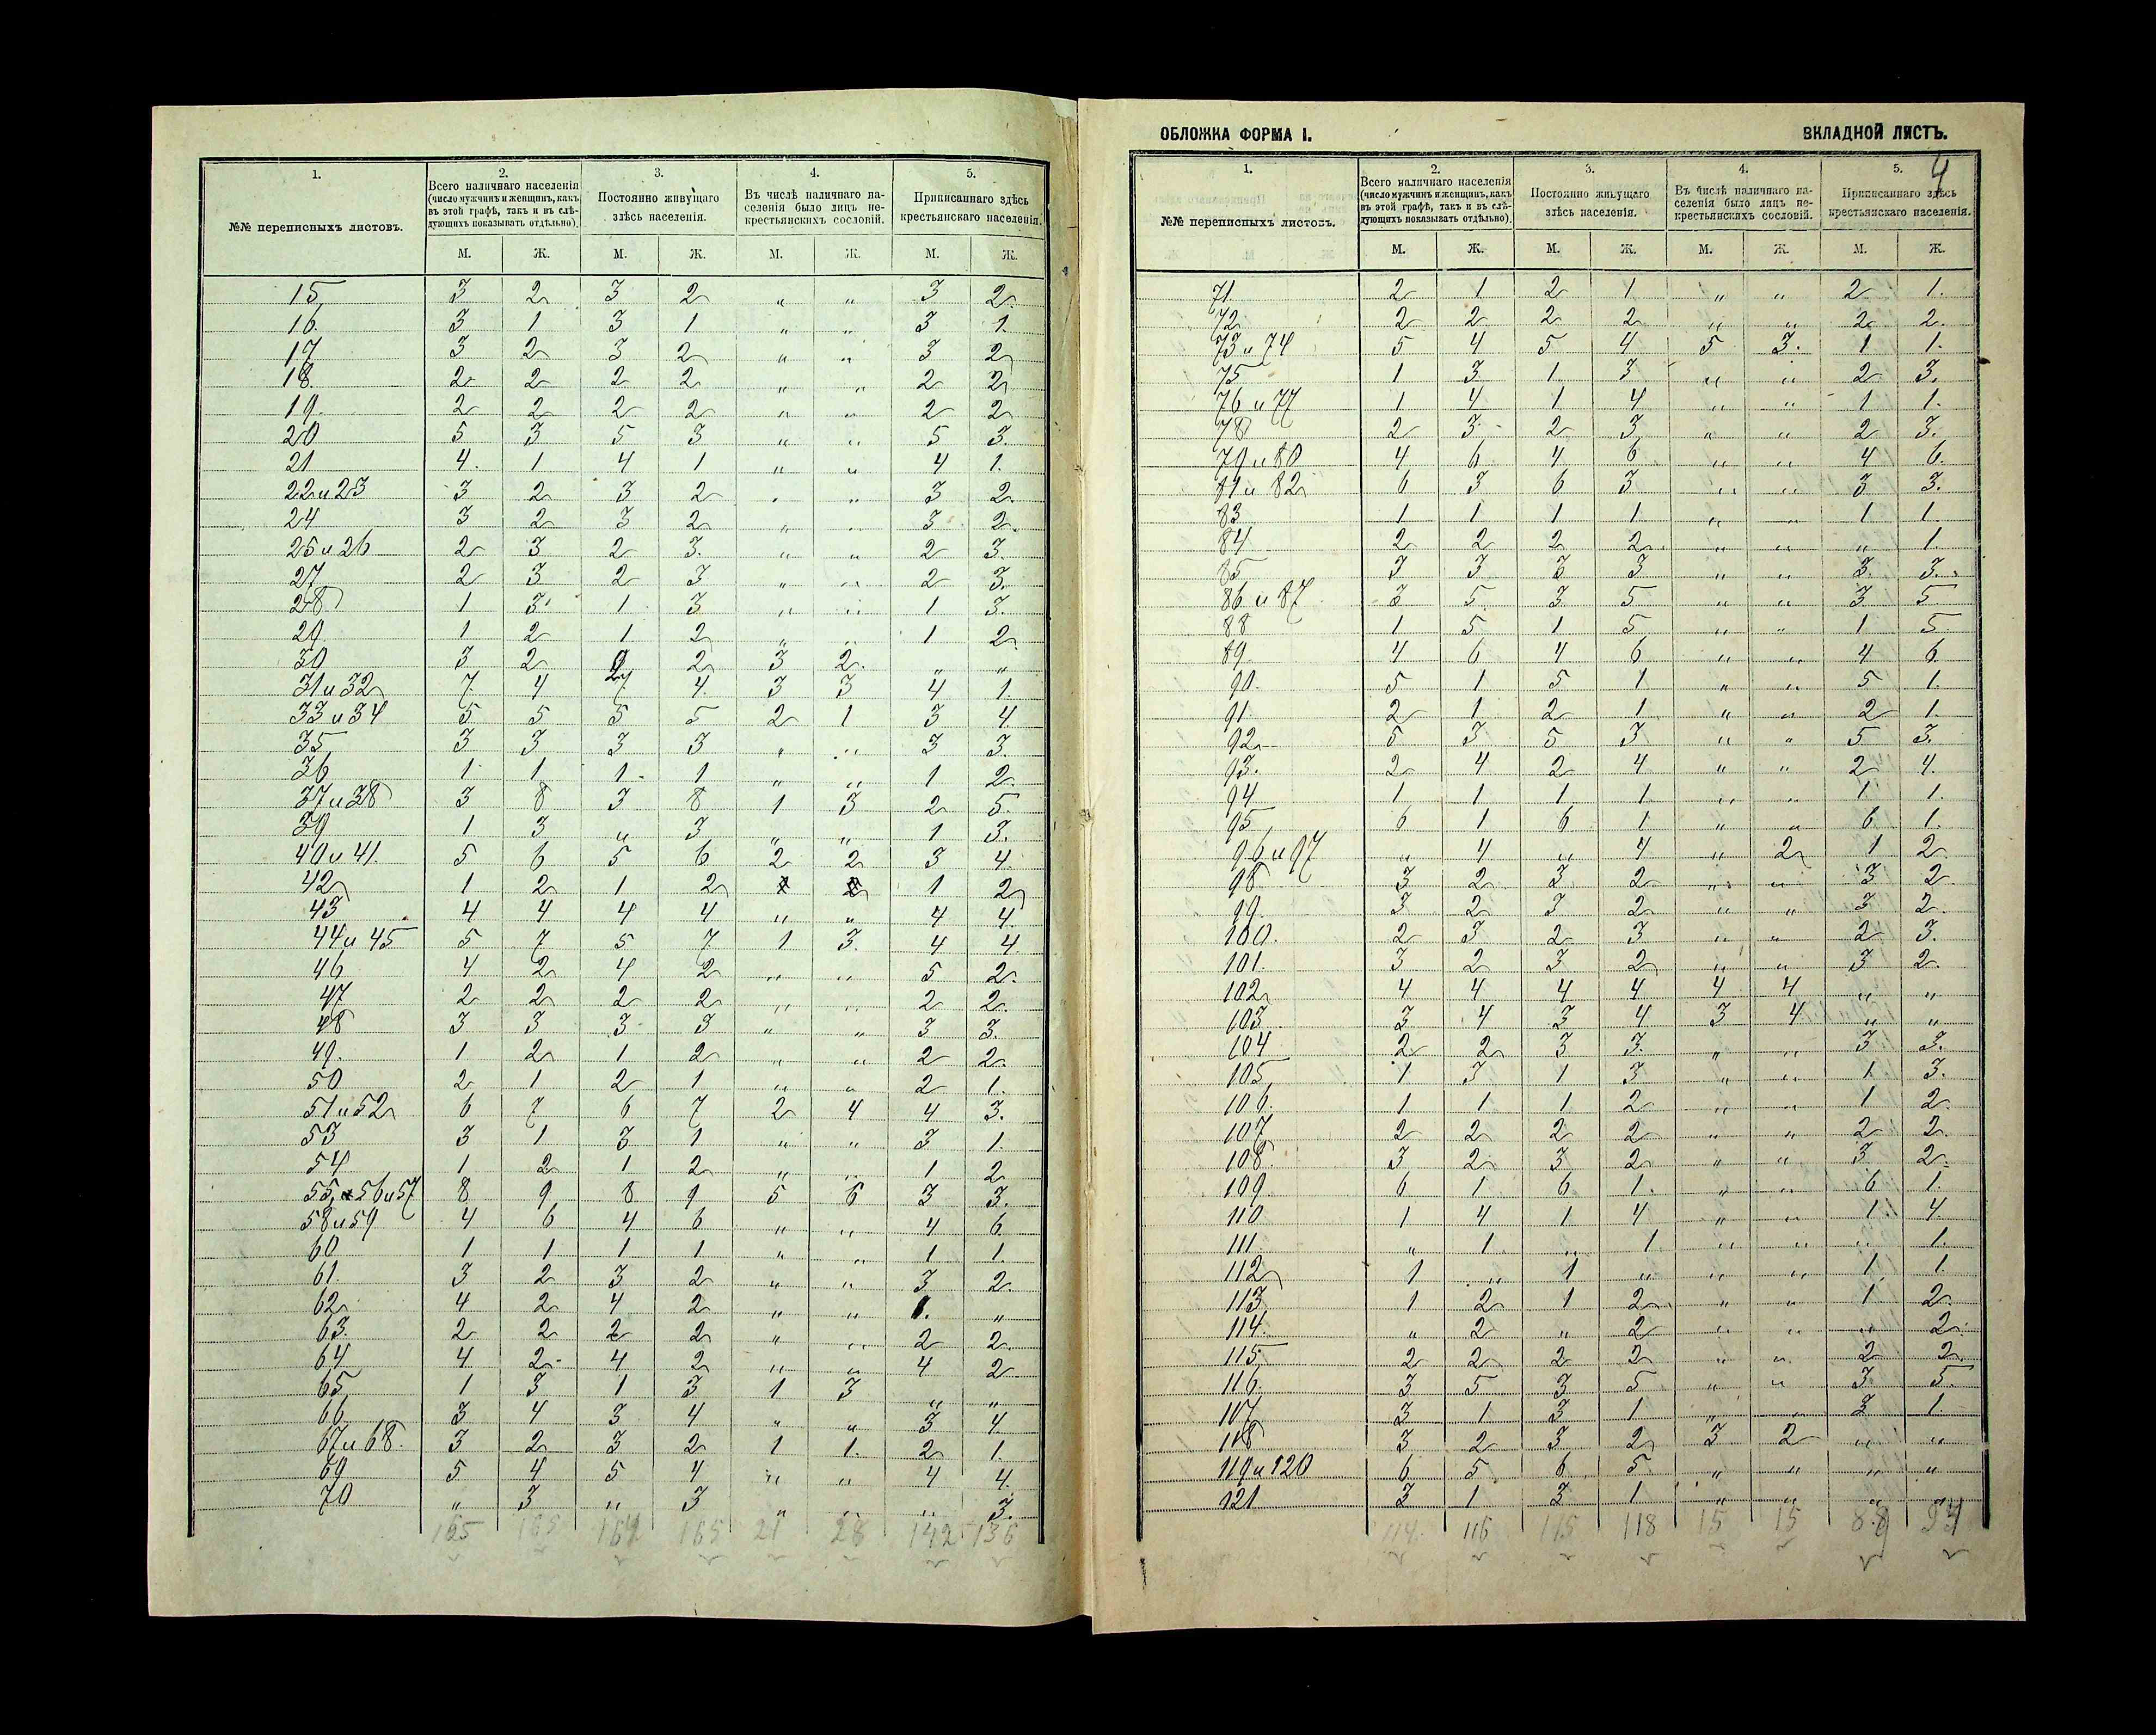 1. 2. 3. 4. 5.
№№ переписныхъ листовъ.
Всего наличнаго населенія
(число мужчинъ и женщинъ, какъ
въ этой графѣ, такъ и въ слѣ-
дующихъ показывать отдѣльно).
Постоянно живущаго
здѣсь населенія.
Въ числѣ наличнаго на-
селенія было лицъ не-
крестьянскихъ сословій.
Приписаннаго здѣсь
крестьянскаго населенія.
М. Ж. М. Ж. М. Ж. М. Ж.
15 3 2 3 2 „ „ 3 2.
16. 3 1 3 1 „ „ 3 1.
17 3 2 3 2 „ „ 3 2
18. 2 2 2 2 „ „ 2 2
19. 2 2 2 2 „ „ 2 2
20 5 3 5 3 „ „ 5 3.
21 4. 1 4 1 „ „ 4 1.
22 и 23 3 2 3 2 „ „ 3 2.
24 3 2 3 2 „ „ 3 2.
25 и 26 2 3 2 3. „ „ 2 3.
27 2 3 2 3 „ „ 2 3.
28 1 3 1 3 „ „ 1 3.
29. 1 2 1 2 „ „ 1 2
30 3 2 2 2 3 2. „ „
31 и 32 7 4 7 4. 3 3 4 1.
33 и 34 5 5 5 5 2 1 3 4.
35 3 3 3 3 „ „ 3 3.
36 1 1 1 1 „ „ 1 2.
37 и 38 3 8 3 8 1 3 2 5.
39 1 3 „ 3 „ „ 1 3.
40 и 41. 5 6 5 6 2 2 3 4
42 1 2 1 2 1 2
43 4 4 4 4 „ „ 4 4.
44 и 45 5 7 5 7 1 3. 4 4.
46 4 2 4 2 „ „ 5 2.
47 2 2 2 2 „ „ 2 2.
48 3 3 3 3 „ „ 3 3.
49. 1 2 1 2 „ „ 2 2.
50 2 1 2 1 „ „ 2 1.
51 и 52 6 7 6 7 2 4 4 3.
53 3 1 3 1 „ „ 3 1
54 1 2 1 2 „ „ 1 2
55, 56 и 57 8 9 8 9 5 6 3 3.
58 и 59 4 6 4 6 „ „ 4 6.
60 1 1 1 1 „ „ 1 1.
61. 3 2 3 2 „ „ 3 2.
62 4 2 4 2 „ „ 1. „
63. 2 2 2 2 „ „ 2 2.
64 4 2 4 2 „ „ 4 2
65 1 3 1 3 1 3 „ „
66 3 4 3 4 „ „ 3 4.
67 и 68. 3 2 3 2 1 1. 2 1.
69 5 4 5 4 „ „ 4 4.
70 „ 3 „ 3 „ „ „ 3.
165 165 164 165 21 28 142 136
ОБЛОЖКА ФОРМА I. ВКЛАДНОЙ ЛИСТЪ.
4
1. 2. 3. 4. 5.
№№ переписныхъ листовъ.
Всего наличнаго населенія
(число мужчинъ и женщинъ, какъ
въ этой графѣ, такъ и въ слѣ-
дующихъ показывать отдѣльно).
Постоянно живущаго
здѣсь населенія.
Въ числѣ наличнаго на-
селенія было лицъ не-
крестьянскихъ сословій.
Приписаннаго здѣсь
крестьянскаго населенія.
М. Ж. М. Ж. М. Ж. М. Ж.
71. 2 1 2 1 „ „ 2 1.
72 2 2 2 2 „ „ 2 2.
73 и 74 5 4 5 4 5 3. 1 1.
75 1 3 1 3 „ „ 2 3.
76 и 77 1 4 1 4 „ „ 1 1.
78 2 3 2 3 „ „ 2 3.
79 и 80 4 6 4 6 „ „ 4 6.
81 и 82 6 3 6 3 „ „ 3 3.
83 1 1 1 1 „ „ 1 1
84 2 2 2 2 „ „ „ 1.
85 3 3 3 3 „ „ 3. 3.
86 и 87 3 5 3 5 „ „ 3 5
88 1 5 1 5 „ „ 1 5.
89. 4 6 4 6 „ „ 4 6.
90. 5 1 5 1 „ „ 5 1.
91. 2 1 2 1 „ „ 2 1.
92 5 3 5 3 „ „ 5 3.
93. 2 4 2 4 „ „ 2 4.
94 1 1 1 1 „ „ 1 1.
95 6 1 6 1 „ „ 6 1.
96 и 97 „ 4 „ 4 „ 2 1 2.
98 3 2 3 2 „ „ 3 2.
99. 3 2 3 2 „ „ 3 2.
100. 2 3 2 3 „ „ 2 3.
101. 3 2 3 2 „ „ 3 2.
102 4 4 4 4 4 4 „ „
103 3 4 3 4 3 4 „ „
104 2 2 3 3. „ „ 3 3.
105 1 3 1 3 „ „ 1 3.
106. 1 1 1 2 „ „ 1 2.
107 2 2 2 2 „ „ 2 2.
108. 3 2 3 2 „ „ 3 2.
109 6 1 6 1. „ „ 6 1.
110 1 4 1 4 „ „ 1 4.
111. „ 1 „ 1 „ „ „ 1.
112 1 „ 1 „ „ „ 1 1.
113 1 2 1 2 „ „ 1 2.
114. „ 2 „ 2 „ „ „ 2.
115 2 2 2 2 „ „ 2 2.
116. 3 5 3 5 „ „ 3 5.
117 3 1 3 1 „ „ 3 1.
118 3 2 3 2 3 2 „ „
119 и 120 6 5 6 5 „ „ „ „
121 3 1 3 1 „ „ „ „
114. 116 115 118 15 15